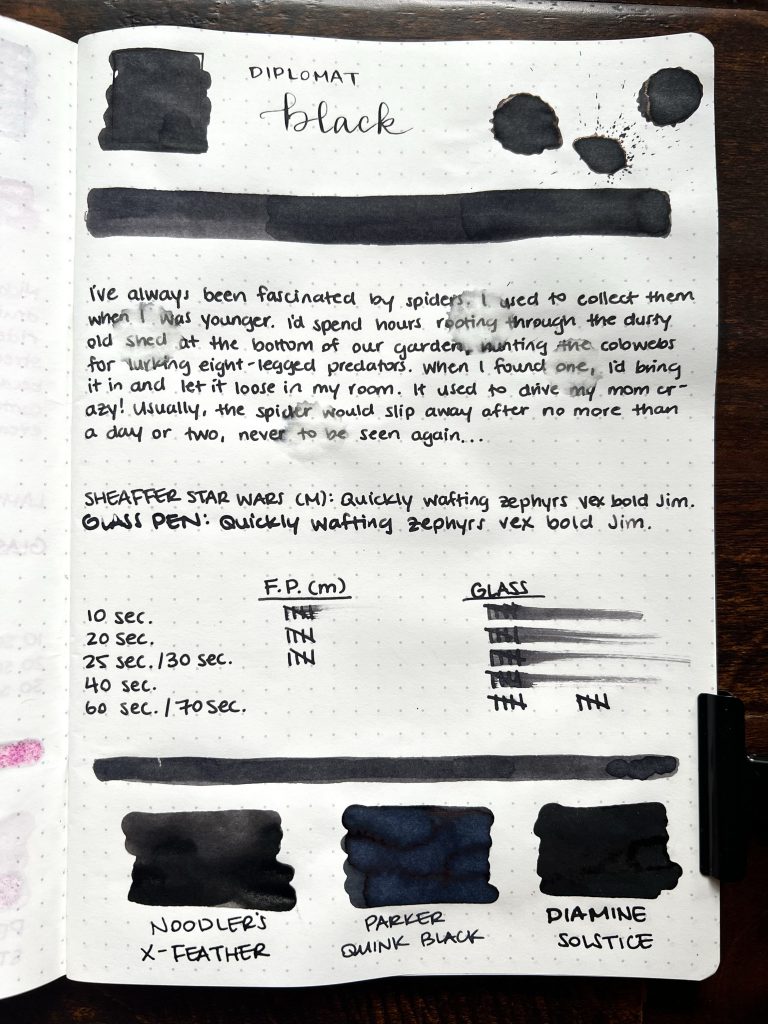 DIPLOMAT
black
I've always been fascinated by spiders. I used to collect them
when I was younger. I'd spend hours rooting through the dusty
old shed at the bottom of our garden, hunting the cobwebs
for lurking eight-legged predators. When I found one, I'd bring
it in and let it loose in my room. It used to drive my mom cr-
azy! Usually, the spider would slip away after no more than
a day or two, never to be seen again...
SHEAFFER STAR WARS (M): Quickly wafting zephyrs vex bold Jim.
GLASS PEN: Quickly wafting zephyrs vex bold Jim.
F.P. (m) GLASS
10 sec.
20 sec.
25 sec./30 sec.
40 sec.
60 sec./70 sec.
NOODLER'S PARKER DIAMINE
X-FEATHER QUINK BLACK SOLSTICE